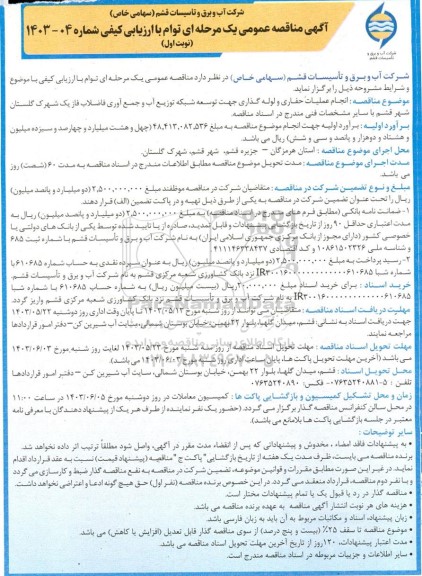 شرکت آب و برق و تاسیسات قشم (سهامی خاص)
آگهی مناقصه عمومی یک مرحله ای توام با ارزیابی کیفی شماره ۰۴-۱۴۰۳
(نوبت اول)
شرکت آب و برق و تأسیسات قشم (سهامی خاص) در نظر دارد مناقصه عمومی یک مرحله ای توام با ارزیابی کیفی با موضوع
و شرایط مشروحه ذیل را برگزار نماید.
موضوع مناقصه: انجام عملیات حفاری و لوله گذاری جهت توسعه شبکه توزیع آب و جمع آوری فاضلاب فاز یک شهرک گلستان
شهر قشم با سایر مشخصات فنی مندرج در اسناد مناقصه.
برآورد اولیه: برآورد اولیه جهت انجام موضوع مناقصه به مبلغ ۴۸,۴۱۳,۰۸۲,۵۳۶ (چهل و هشت میلیارد و چهارصد و سیزده میلیون
و هشتاد و دو هزار و پانصد و سی و شش) ریال می باشد.
محل اجرای موضوع مناقصه: استان هرمزگان - جزیره قشم، شهر قشم، شهرک گلستان.
مدت اجرای موضوع مناقصه: مدت تحویل موضوع مناقصه مطابق اطلاعات مندرج در اسناد مناقصه به مدت ۶۰ (شصت) روز
می باشد.
مبلغ و نوع تضمین شرکت در مناقصه: متقاضیان شرکت در مناقصه موظفند مبلغ ۲,۵۰۰,۰۰۰,۰۰۰ (دو میلیارد و پانصد میلیون)
ریال را تحت عنوان تضمین شرکت در مناقصه به یکی از طرق ذیل تهیه و در پاکت تضمین (الف) قرار دهند.
۱- ضمانت نامه بانکی (مطابق فرم های مندرج در اسناد مناقصه) به مبلغ ۲,۵۰۰,۰۰۰,۰۰۰ (دو میلیارد و پانصد میلیون) ریال به
مدت اعتباری حداقل ۹۰ روز از تاریخ بازگشایی پیشنهادات و قابل تمدید، صادره از یا تایید شده توسط یکی از بانک های دولتی یا
خصوصی کشور (دارای مجوز از بانک مرکزی جمهوری اسلامی ایران) به نام شرکت آب و برق و تأسیسات قشم با شماره ثبت ۶۸۵
و شناسه ملی ۱۰۸۶۱۵۰۲۳۲۶ و کد اقتصادی ۴۱۱۱۴۶۳۳۸۴۳۷
۲- رسید پرداخت به مبلغ ۲,۵۰۰,۰۰۰,۰۰۰ (دو میلیارد و پانصد میلیون) ریال به عنوان سپرده نقدی به حساب شماره ۶۱۰۶۸۵ با
نزد بانک کشاورزی شعبه مرکزی قشم به نام شرکت آب و برق و تأسیسات قشم
خرید اسناد: برای خرید اسناد مبلغ ریال (بیست میلیون ریال) به شماره حساب ۶۱۰۶۸۵ با شماره شبا
به نام شرکت آب و برق و تأسیسات قشم نزد بانک کشاورزی شعبه مرکزی قشم واریز گردد.
مهلت دریافت اسناد مناقصه: متقاضیان می توانند از روز شنبه مورخ ۱۴۰۳/۰۵/۱۳ تا پایان وقت اداری روز دوشنبه ۱۴۰۳/۰۵/۲۲
جهت دریافت اسناد به نشانی: قشم، میدان گلها، بلوار ۲۲ بهمن، خیابان بوستان شمالی، سایت آب شیرین کن- دفتر امور قراردادها
مراجعه نمایند.
مهلت تحویل اسناد مناقصه: مهلت تحویل اسناد مناقصه از روز سه شنبه مورخ لغایت روز شنبه مورخ ۱۴۰۳/۰۶/۰۳
می باشد (آخرین مهلت تحویل پاکت ها، پایان ساعت اداری روز شنبه مورخ ۱۴۰۳/۰۶/۰۳ می باشد).
محل تحویل اسناد مناقصه: قشم، میدان گلها، بلوار ۲۲ بهمن، خیابان بوستان شمالی، سایت آب شیرین کن- دفتر امور قراردادها
تلفن: ۵-۰۷۶۳۵۲۴۰۸۸۱ فکس: ۰۷۶۳۵۲۴۰۸۹۰
زمان و محل تشکیل کمیسیون و بازگشایی پاکت ها: کمیسیون معاملات در روز دوشنبه مورخ ۱۴۰۳/۰۶/۰۵ در ساعت ۱۱:۰۰
در محل سالن کنفرانس مناقصه گذار برگزار می گردد. (حضور یک نفر نماینده از طرف هر یک از پیشنهاد دهندگان با معرفی نامه
معتبر در جلسه بازگشایی پاکت ها بلامانع می باشد).
سایر توضیحات:
- به پیشنهادات فاقد امضاء، مخدوش و پیشنهاداتی که پس از انقضاء مدت مقرر در آگهی، واصل شود مطلقاً ترتیب اثر داده نخواهد شد.
برنده مناقصه می بایست، ظرف مدت یک هفته از تاریخ بازگشایی "پاکت ج" مناقصه (پیشنهاد قیمت) نسبت به عقد قرارداد اقدام
نماید. در غیر این صورت مطابق مقررات و قوانین موضوعه، تضمین شرکت در مناقصه به نفع مناقصه گذار ضبط و کارسازی می گردد
و با نفر دوم مناقصه، قرارداد منعقد می گردد. در این خصوص برنده مناقصه (نفر اول) حق هیچ گونه ادعا و اعتراضی نخواهد داشت.
- مناقصه گذار در رد یا قبول یک یا تمام پیشنهادات مختار است.
- هزینه های هر نوبت انتشار آگهی مناقصه به عهده برنده مناقصه می باشد.
- زبان پیشنهاد، اسناد و مکاتبات مربوط به آن باید به زبان فارسی باشد.
- موضوع مناقصه تا سقف ۲۵٪ (بیست و پنج درصد) از سوی مناقصه گذار قابل تعدیل (افزایش یا کاهش) می باشد.
- مدت اعتبار پیشنهادات، ۱۲۰ روز از تاریخ آخرین مهلت تحویل اسناد مناقصه می باشد.
- سایر اطلاعات و جزییات مربوطه در اسناد مناقصه مندرج است.